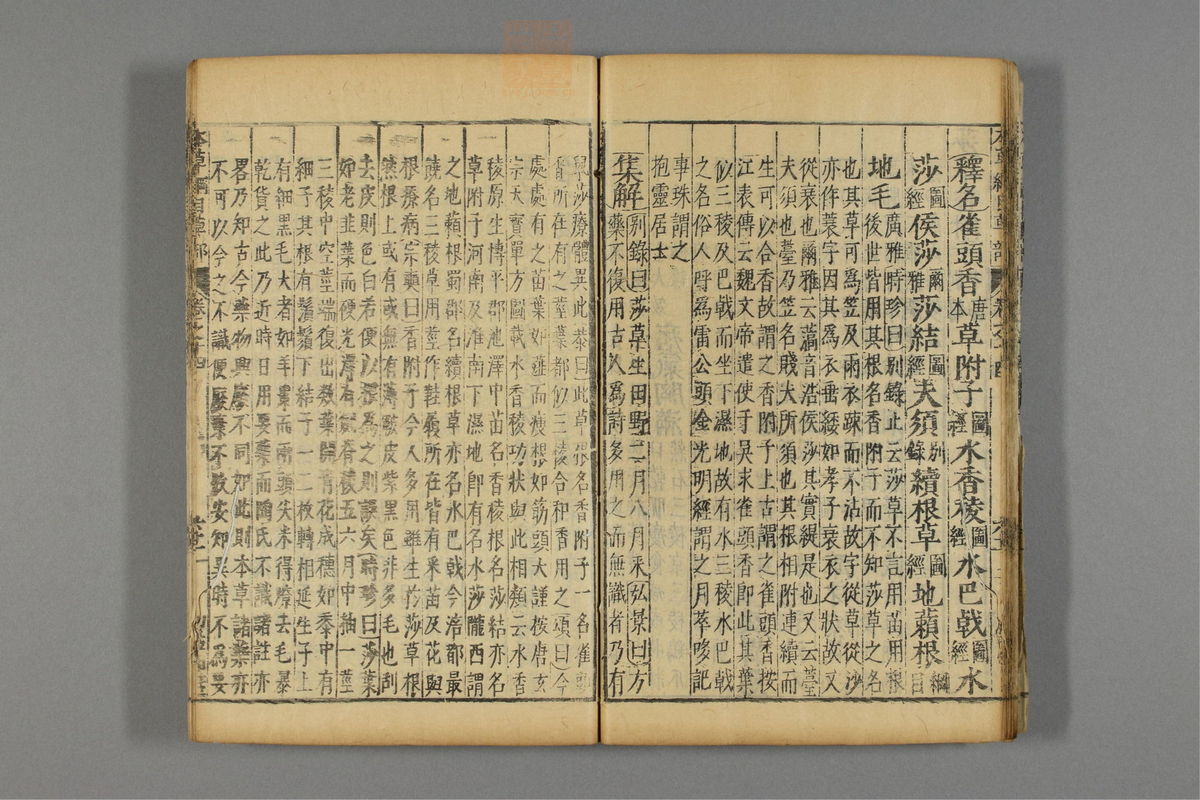 釋名雀頭香唐本草附子圖經水香稜圖經水巴戟圖經水
莎圖經侯莎爾雅莎結圖經夫須別錄續根草圖經地藾根綱目
地毛廣雅時珍曰別錄止云莎草不言用苗用根
後世皆用其根名香附子而不知莎草之名
也其草可爲笠及雨衣疎而不沾故字從草從沙
亦作蓑字因其爲衣垂緌如孝子衰衣之狀故又
從衰也爾雅云薃音浩侯莎其實緹是也又云薹
夫須也薹乃笠名賤夫所須也其根相附連續而
生可以合香故謂之香附子上古謂之雀頭香按
江表傳云魏文帝遣使于吳求雀頭香即此其葉
似三稜及巴戟而生下濕地故有水三稜水巴戟
之名俗人呼爲雷公頭金光明經謂之月萃哆記
事珠謂之
抱靈居士
集解別錄曰莎草生田野二月八月采弘景曰方
藥不復用古人爲詩多用之而無識者乃有
鼠莎療體異此恭曰此草根名香附子一名雀頭
香所在有之莖葉都似三稜合和香用之頌曰今
處處有之苗葉如薤而瘦根如筯頭大謹按唐玄
宗天寶單方圖載水香稜功狀與此相類云水香
稜原生博平郡池澤中苗名香稜根名莎結亦名
草附子河南及淮南下濕地即有名水莎隴西謂
之地藾根蜀郡名續根草亦名水巴戟今涪都最
饒名三稜草用莖作鞋履所在皆有采苗及花與
根療病宗奭曰香附子今人多用雖生於莎草根
然根上或有或無有薄皸皮紫黑色非多毛也刮
去皮則色白若便以根爲之則誤矣時珍曰莎葉
如老韭葉而硬光澤有劍脊稜五六月中抽一莖
三稜中空莖端復出數葉開青花成穗如黍中有
細子其根有鬚鬚下結子一二枚轉相延生子上
有細黑毛大者如羊棗而兩頭尖采得燎去毛暴
乾貨之此乃近時日用要藥而陶氏不識諸註亦
畧乃知古今藥物興廢不同如此則本草諸藥亦
不可以今之不識便廢棄不收安知異時不爲要